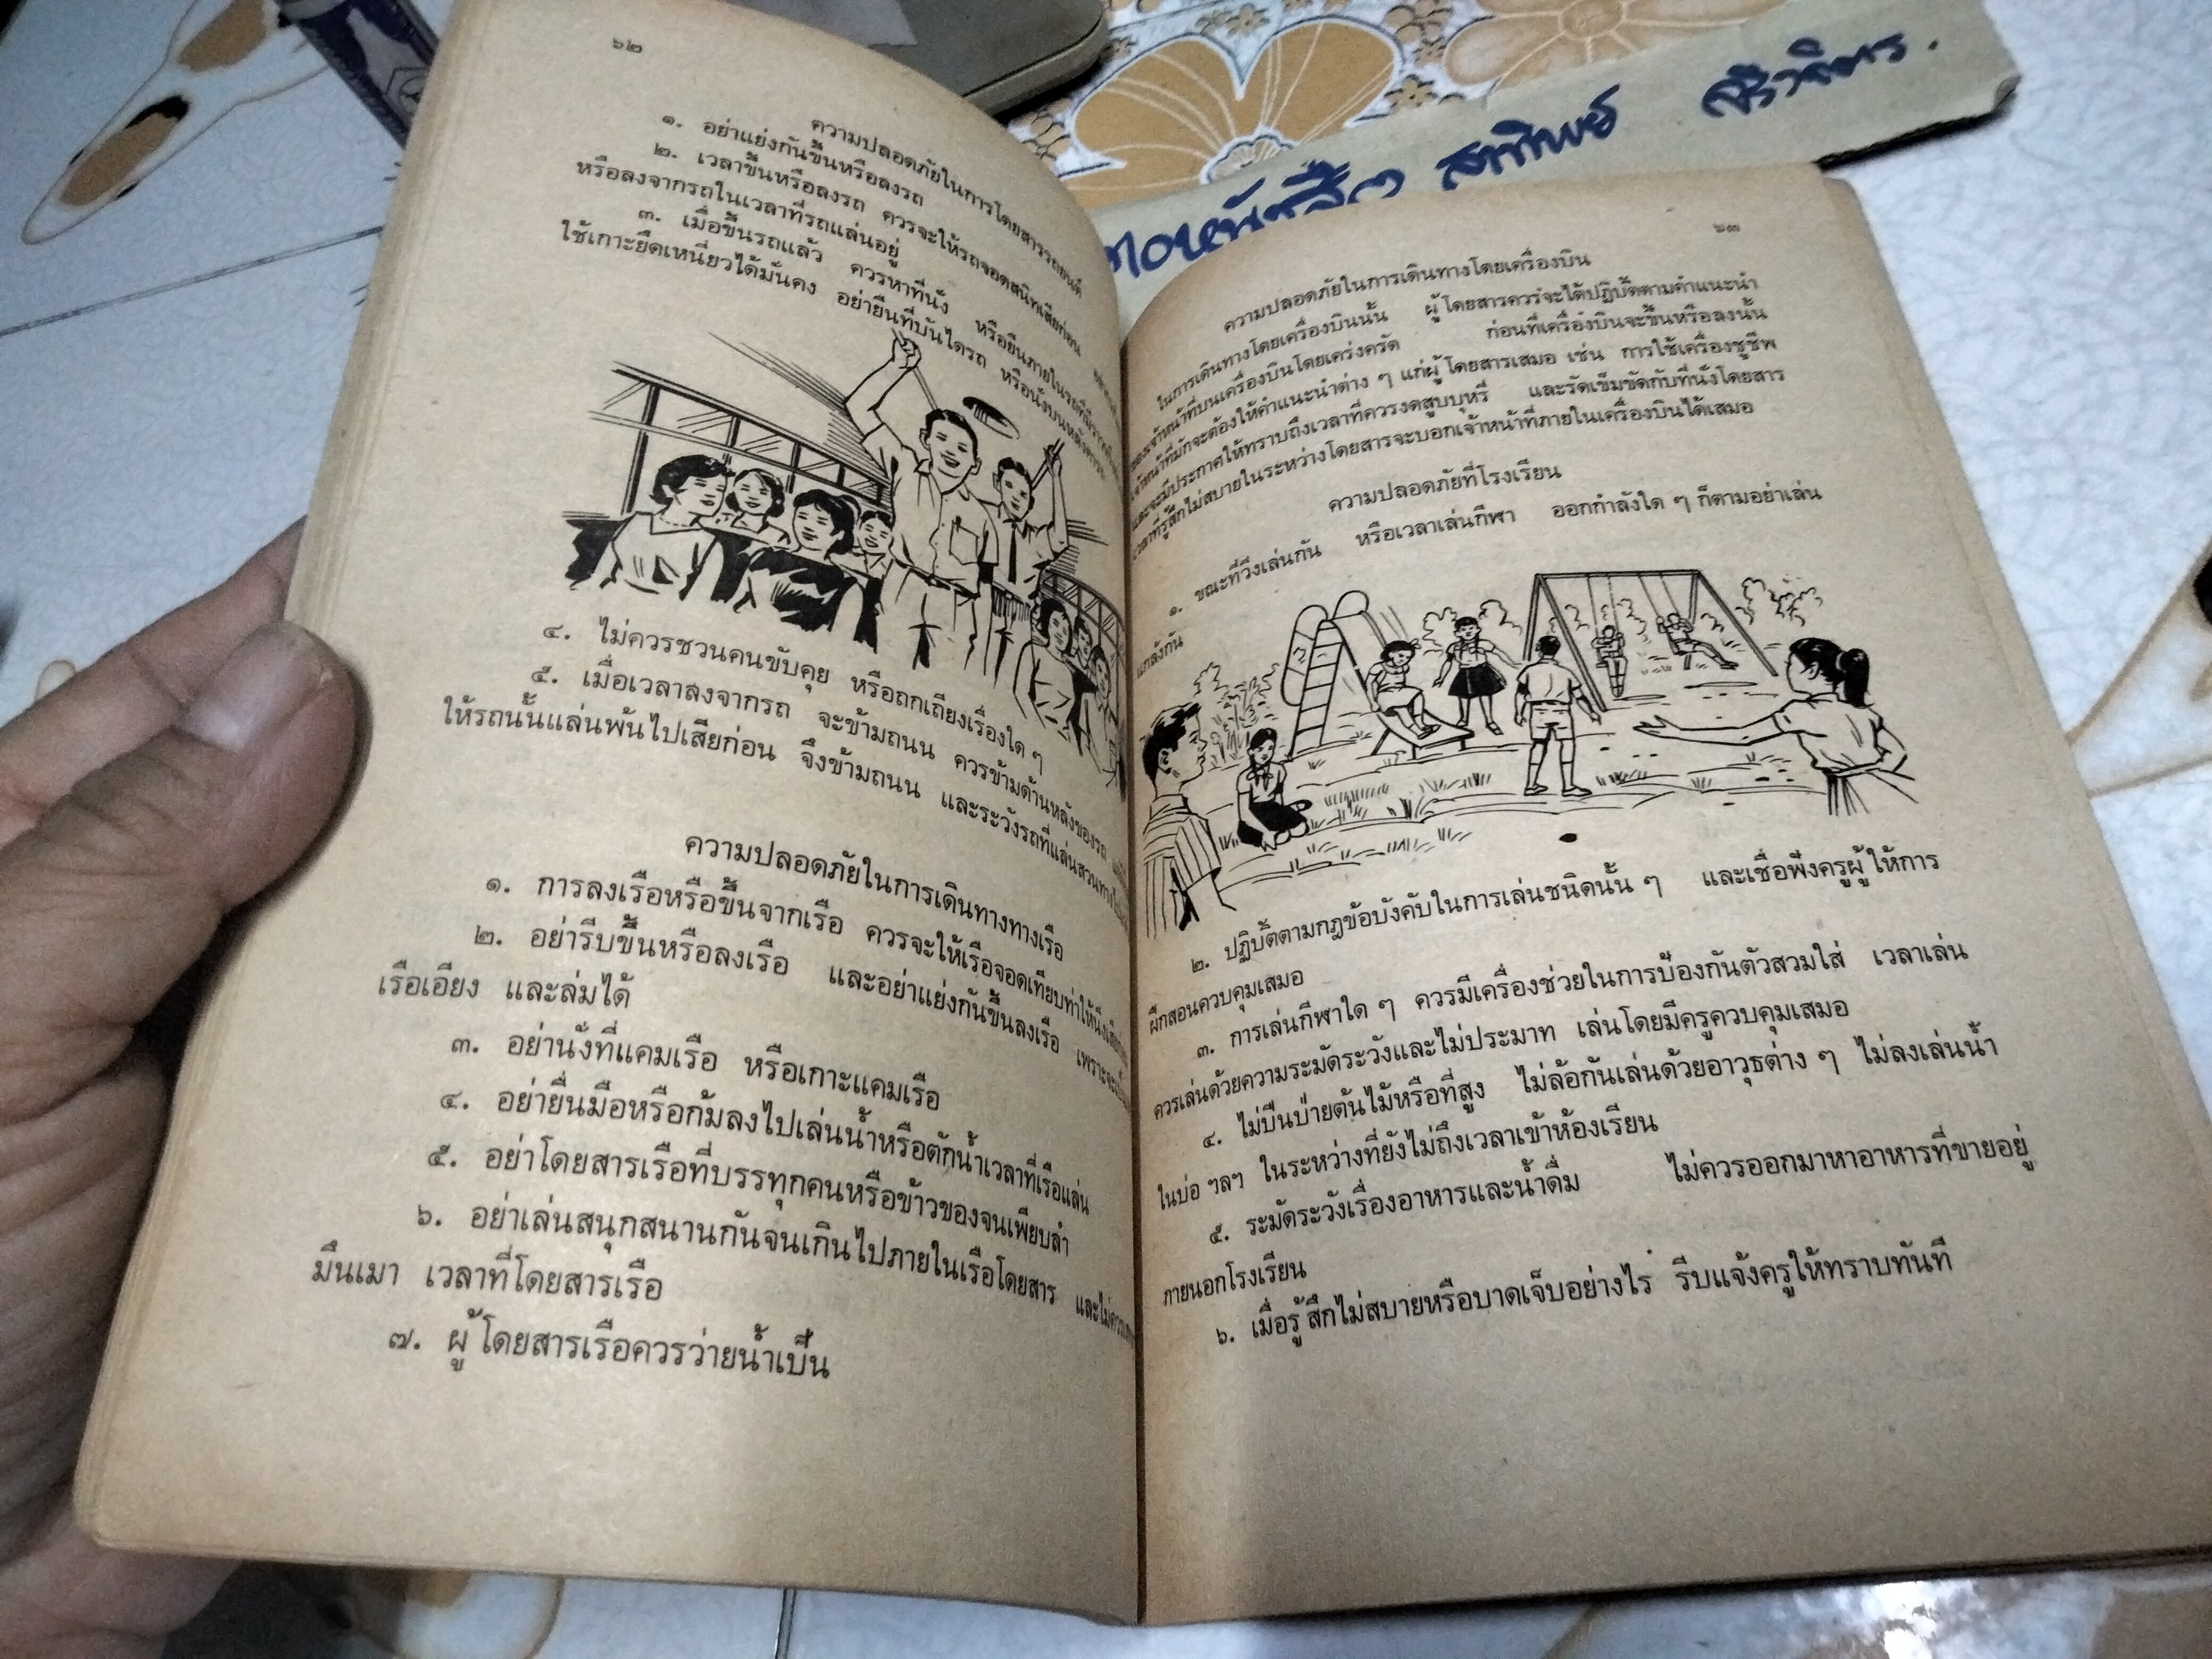 ๖๒
ความปลอดภัยในการโดยสารรถยนต์
๑. อย่าแย่งกันขึ้นหรือลงรถ
๒. เวลาขึ้นหรือลงรถ ควรจะให้รถจอดสนิทเสียก่อน
หรือลงจากรถในเวลาที่รถแล่นอยู่
๓. เมื่อขึ้นรถแล้ว ควรหาที่นั่ง หรือยืนภายในรถที่มีราว
ใช้เกาะยึดเหนี่ยวได้มั่นคง อย่ายืนที่บันไดรถ หรือนั่งบนหลังคารถ
๔. ไม่ควรชวนคนขับคุย หรือถกเถียงเรื่องใด ๆ
๕. เมื่อเวลาลงจากรถ จะข้ามถนน ควรข้ามด้านหลังของรถ
ให้รถนั้นแล่นพ้นไปเสียก่อน จึงข้ามถนน และระวังรถที่แล่นสวนทาง
ความปลอดภัยในการเดินทางทางเรือ
๑. การลงเรือหรือขึ้นจากเรือ ควรจะให้เรือจอดเทียบท่าให้นิ่ง
๒. อย่ารีบขึ้นหรือลงเรือ และอย่าแย่งกันขึ้นลงเรือ เพราะจะ
เรือเอียง และล่มได้
๓. อย่านั่งที่แคมเรือ หรือเกาะแคมเรือ
๔. อย่ายื่นมือหรือก้มลงไปเล่นน้ำหรือตักน้ำเวลาที่เรือแล่น
๕. อย่าโดยสารเรือที่บรรทุกคนหรือข้าวของจนเพียบลำ
๖. อย่าเล่นสนุกสนานกันจนเกินไปภายในเรือโดยสาร และไม่ควร
มึนเมา เวลาที่โดยสารเรือ
๗. ผู้โดยสารเรือควรว่ายน้ำเป็น
สุทิพย์
๖๓
ความปลอดภัยในการเดินทางโดยเครื่องบิน
ในการเดินทางโดยเครื่องบินนั้น ผู้โดยสารควรจะได้ปฏิบัติตามคำแนะนำ
ของเจ้าหน้าที่บนเครื่องบินโดยเคร่งครัด ก่อนที่เครื่องบินจะขึ้นหรือลงนั้น
เจ้าหน้าที่มักจะต้องให้คำแนะนำต่าง ๆ แก่ผู้โดยสารเสมอ เช่น การใช้เครื่องชูชีพ
และจะมีประกาศให้ทราบถึงเวลาที่ควรงดสูบบุหรี่ และรัดเข็มขัดกับที่นั่งโดยสาร
เวลาที่รู้สึกไม่สบายในระหว่างโดยสารจะบอกเจ้าหน้าที่ภายในเครื่องบินได้เสมอ
ความปลอดภัยที่โรงเรียน
๑. ขณะที่วิ่งเล่นกัน หรือเวลาเล่นกีฬา ออกกำลังใด ๆ ก็ตามอย่าเล่น
แกล้งกัน
๒. ปฏิบัติตามกฎข้อบังคับในการเล่นชนิดนั้น ๆ และเชื่อฟังครูผู้ให้การ
ฝึกสอนควบคุมเสมอ
๓. การเล่นกีฬาใด ๆ ควรมีเครื่องช่วยในการป้องกันตัวสวมใส่ เวลาเล่น
ควรเล่นด้วยความระมัดระวังและไม่ประมาท เล่นโดยมีครูควบคุมเสมอ
๔. ไม่ปีนป่ายต้นไม้หรือที่สูง ไม่ล้อกันเล่นด้วยอาวุธต่าง ๆ ไม่ลงเล่นน้ำ
ในบ่อ ฯลฯ ในระหว่างที่ยังไม่ถึงเวลาเข้าห้องเรียน
๕. ระมัดระวังเรื่องอาหารและน้ำดื่ม ไม่ควรออกมาหาอาหารที่ขายอยู่
ภายนอกโรงเรียน
๖. เมื่อรู้สึกไม่สบายหรือบาดเจ็บอย่างไร รีบแจ้งครูให้ทราบทันที